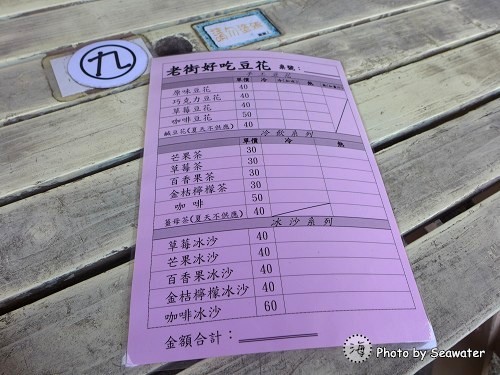 九
請勿塗鴉
老街好吃豆花 桌號：
單價 冷 熱
原味豆花 40
巧克力豆花 40
草莓豆花 40
咖啡豆花 50
鹹豆花(夏天不供應) 40
冷飲系列
單價 冷 熱
芒果茶 30
草莓茶 30
百香果茶 30
金桔檸檬茶 30
咖啡 50
薑母茶(夏天不供應) 40
冰沙系列
草莓冰沙 40
芒果冰沙 40
百香果冰沙 40
金桔檸檬冰沙 40
咖啡冰沙 60
金額合計：
海 Photo by Seawater